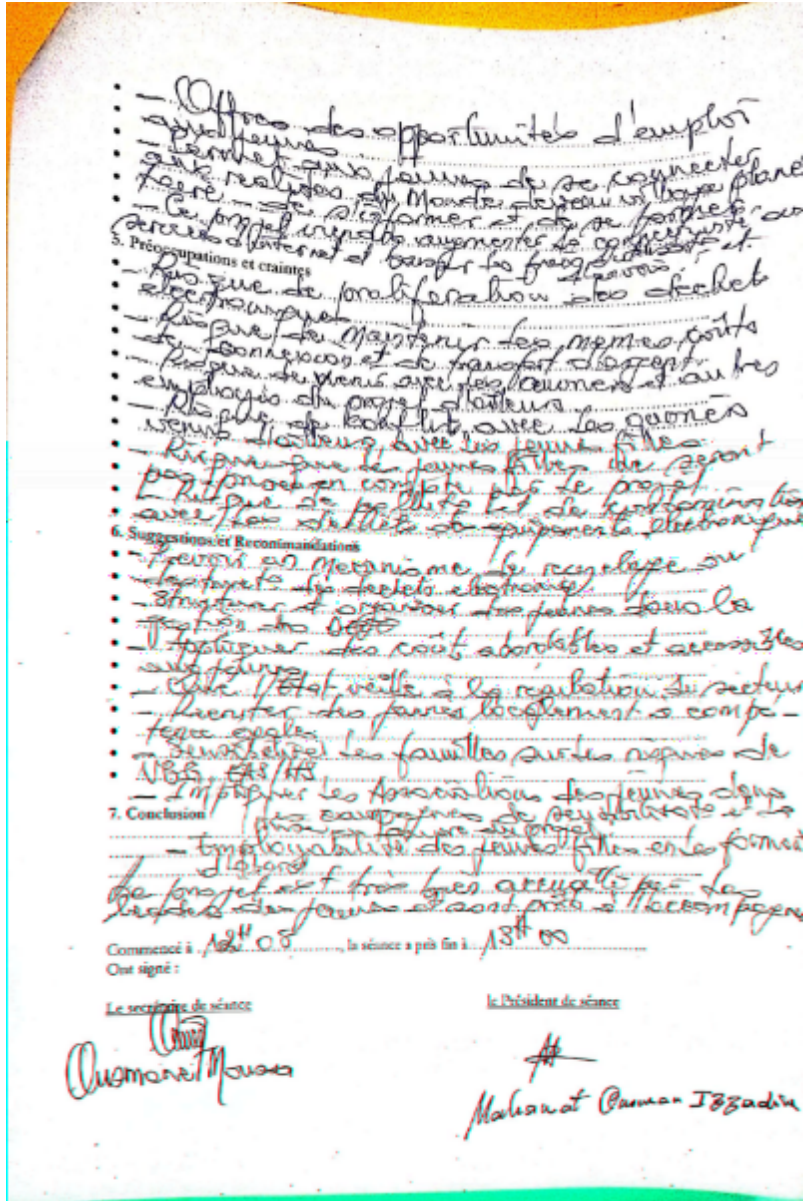 - Offres des opportunités d'emploi
aux jeunes
- Permet aux jeunes de se connecter
aux réalités du Monde devenu village plané
taire - de s'informer et de se former
- Ce projet viendra augmenter la
services d'internet et baisser les frais
5. Préoccupations et craintes
- Risque de prolifération des déchets
électroniques
- Risque de Maintenir les mêmes coûts
de connexion et de transfert d'argent
- Risque de avec les et autres
employés du projet d'ailleurs
- Risque de conflit avec les
venus d'ailleurs avec les jeunes filles
- Risque que les jeunes filles ne seront
pas prises en compte par le projet
- Risque de et de contamination
avec les déchets équipements électroniques
6. Suggestions et Recommandations
- Prévoir un mécanisme de recyclage ou
des déchets
- Structurer et organiser des jeunes dans la
gestion des
- Appliquer des coût abordables et accessibles
aux jeunes
- Que l'Etat veille à la régulation du secteur
- Recruter des jeunes localement a compé-
tence égale
- Sensibiliser les familles sur les risques de
VBG, EAS/HS
- Impliquer les Associations des jeunes dans
7. Conclusion
les campagnes de et la
du projet
- Employabilité des jeunes filles en les formant
d'abord
Le projet est très bien accueilli par les
leaders des jeunes et sont prêts à l'accompagner
Commencé à 12H 05, la séance a pris fin à 13H 00
Ont signé :
Le secrétaire de séance le Président de séance
Ousmane Moussa
Mahamat Ousman Izzadin